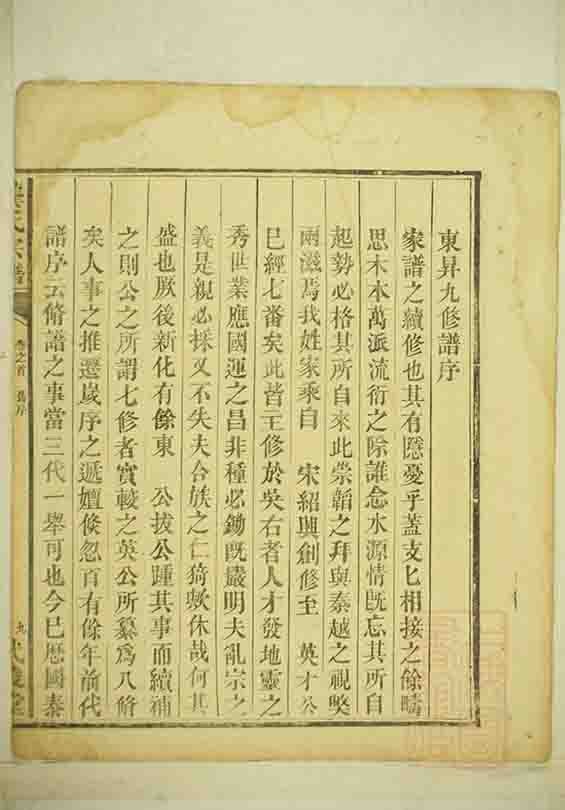 東昇九修譜序
家譜之續修也其有隱憂乎蓋支匕相接之餘疇
思木本萬派流衍之際誰念水源情既忘其所自
起勢必格其所自來此崇韜之拜與秦越之視獘
兩滋焉我姓家乘自 宋紹興創修至 英才公
巳經七番矣此皆主修於吳右者人才發地靈之
秀世業應國運之昌非種必鋤既嚴明夫亂宗之
義是親必採又不失夫合族之仁猗歟休哉何其
盛也厥後新化有餘東 公拔公踵其事而續補
之則公之所謂七修者實較之英公所纂爲八脩
矣人事之推遷嵗序之遞嬗倐忽百有餘年前代
譜序云脩譜之事當三代一舉可也今巳歴國泰
氏宗譜
卷之首 舊序
九